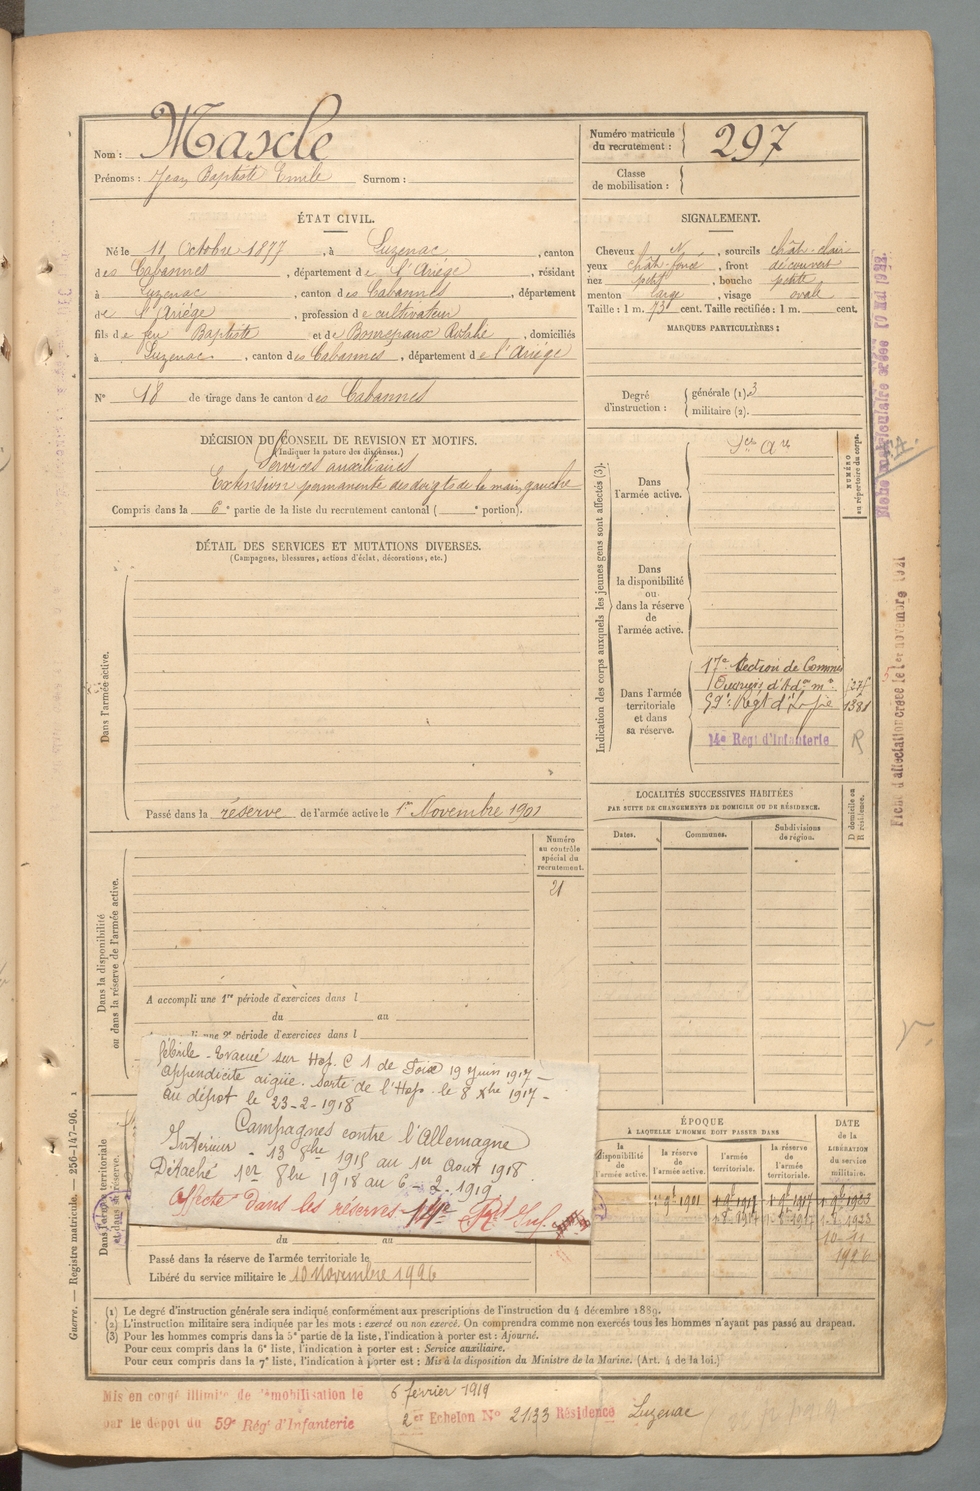 Nom : Mascle
Prénoms : Jean Baptiste Emile Surnom :
Numéro matricule du recrutement : 297
Classe de mobilisation :
ÉTAT CIVIL.
Né le 11 Octobre 1877, à Luzenac, canton
des Cabannes, département de l'Ariége, résidant
à Luzenac, canton des Cabannes, département
de l'Ariége, profession de cultivateur
fils de feu Baptiste et de Bonrepaux Rosalie, domiciliés
à Luzenac, canton des Cabannes, département de l'Ariége
N° 18 de tirage dans le canton des Cabannes
SIGNALEMENT.
Cheveux N, sourcils chât-clair
yeux chât-foncé, front découvert
nez petit, bouche petite
menton large, visage ovale
Taille : 1 m. 73 cent. Taille rectifiée : 1 m. cent.
MARQUES PARTICULIÈRES :
Degré d'instruction :
générale (1). 3
militaire (2).
DÉCISION DU CONSEIL DE REVISION ET MOTIFS.
(Indiquer la nature des dispenses.)
Services auxiliaires
Extension permanente des doigts de la main gauche
Compris dans la 6e partie de la liste du recrutement cantonal ( e portion).
DÉTAIL DES SERVICES ET MUTATIONS DIVERSES.
(Campagnes, blessures, actions d'éclat, décorations, etc.)
Dans l'armée active.
Passé dans la réserve de l'armée active le 1er Novembre 1901
Indication des corps auxquels les jeunes gens sont affectés (3).
NUMÉRO au répertoire du corps.
Dans l'armée active.
Dans la disponibilité ou dans la réserve de l'armée active.
Dans l'armée territoriale et dans sa réserve.
17e Section de Commis
Ouvriers d'Adon mre
59e Régt d'Infie 1381
14e Regt d'Infanterie R
LOCALITÉS SUCCESSIVES HABITÉES
PAR SUITE DE CHANGEMENTS DE DOMICILE OU DE RÉSIDENCE.
Dates. Communes. Subdivisions de région.
D domicile ou R résidence.
Numéro au contrôle spécial du recrutement.
21
Dans la disponibilité ou dans la réserve de l'armée active.
A accompli une 1re période d'exercices dans l
du au
une 2e période d'exercices dans l
fébrile - Evacué sur Hop. C 1 de Foix 19 juin 1917 -
appendicite aigüe. Sorti de l'Hop. le 8 Xbre 1917 -
au dépôt le 23-2-1918
Campagnes contre l'Allemagne
Intérieur - 13 8bre 1915 au 1er Aout 1918
Détaché 1er 8bre 1918 au 6-2-1919
Affecté dans les réserves Rt Inf.
Dans l'armée territoriale et dans sa réserve.
du au
Passé dans la réserve de l'armée territoriale le
Libéré du service militaire le 10 Novembre 1926
ÉPOQUE
À LAQUELLE L'HOMME DOIT PASSER DANS
la disponibilité de l'armée active.
la réserve de l'armée active.
l'armée territoriale.
la réserve de l'armée territoriale.
DATE de la LIBÉRATION du service militaire.
10-11
1926
(1) Le degré d'instruction générale sera indiqué conformément aux prescriptions de l'instruction du 4 décembre 1889.
(2) L'instruction militaire sera indiquée par les mots : exercé ou non exercé. On comprendra comme non exercés tous les hommes n'ayant pas passé au drapeau.
(3) Pour les hommes compris dans la 5e partie de la liste, l'indication à porter est : Ajourné.
Pour ceux compris dans la 6e liste, l'indication à porter est : Service auxiliaire.
Pour ceux compris dans la 7e liste, l'indication à porter est : Mis à la disposition du Ministre de la Marine. (Art. 4 de la loi.)
Mis en congé illimité de démobilisation le 6 février 1919
par le dépot du 59e Rég' d'Infanterie 2er Echelon N° 2133 Résidence Luzenac
Guerre. — Registre matricule. — 256-147-96. 1
Fiche matriculaire créée
Fiche d'affectation créée le 1er novembre 1921